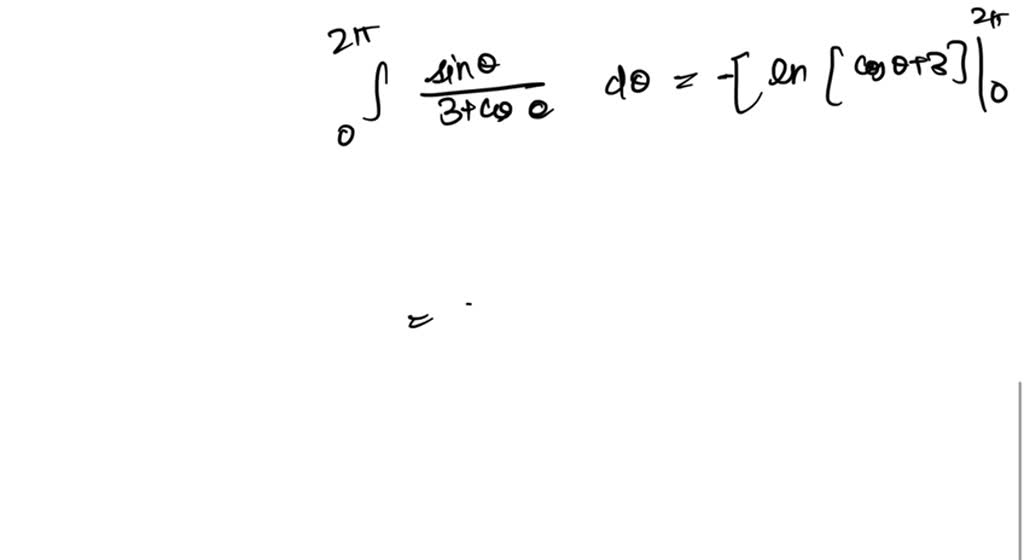 ∫₀^{2π} sinθ / (3+cos θ) dθ = -[ln [cos θ+3]|₀^{2π}
=